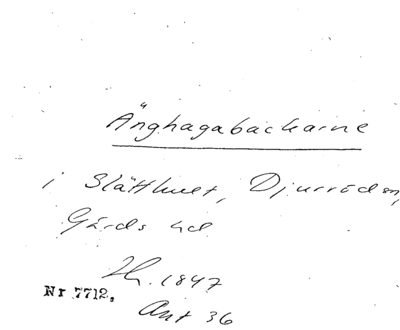 Änghagabackarne
i Slätthult, Djurröden,
Gärds hd
Lh. 1847
Nr 7712.
Akt 36